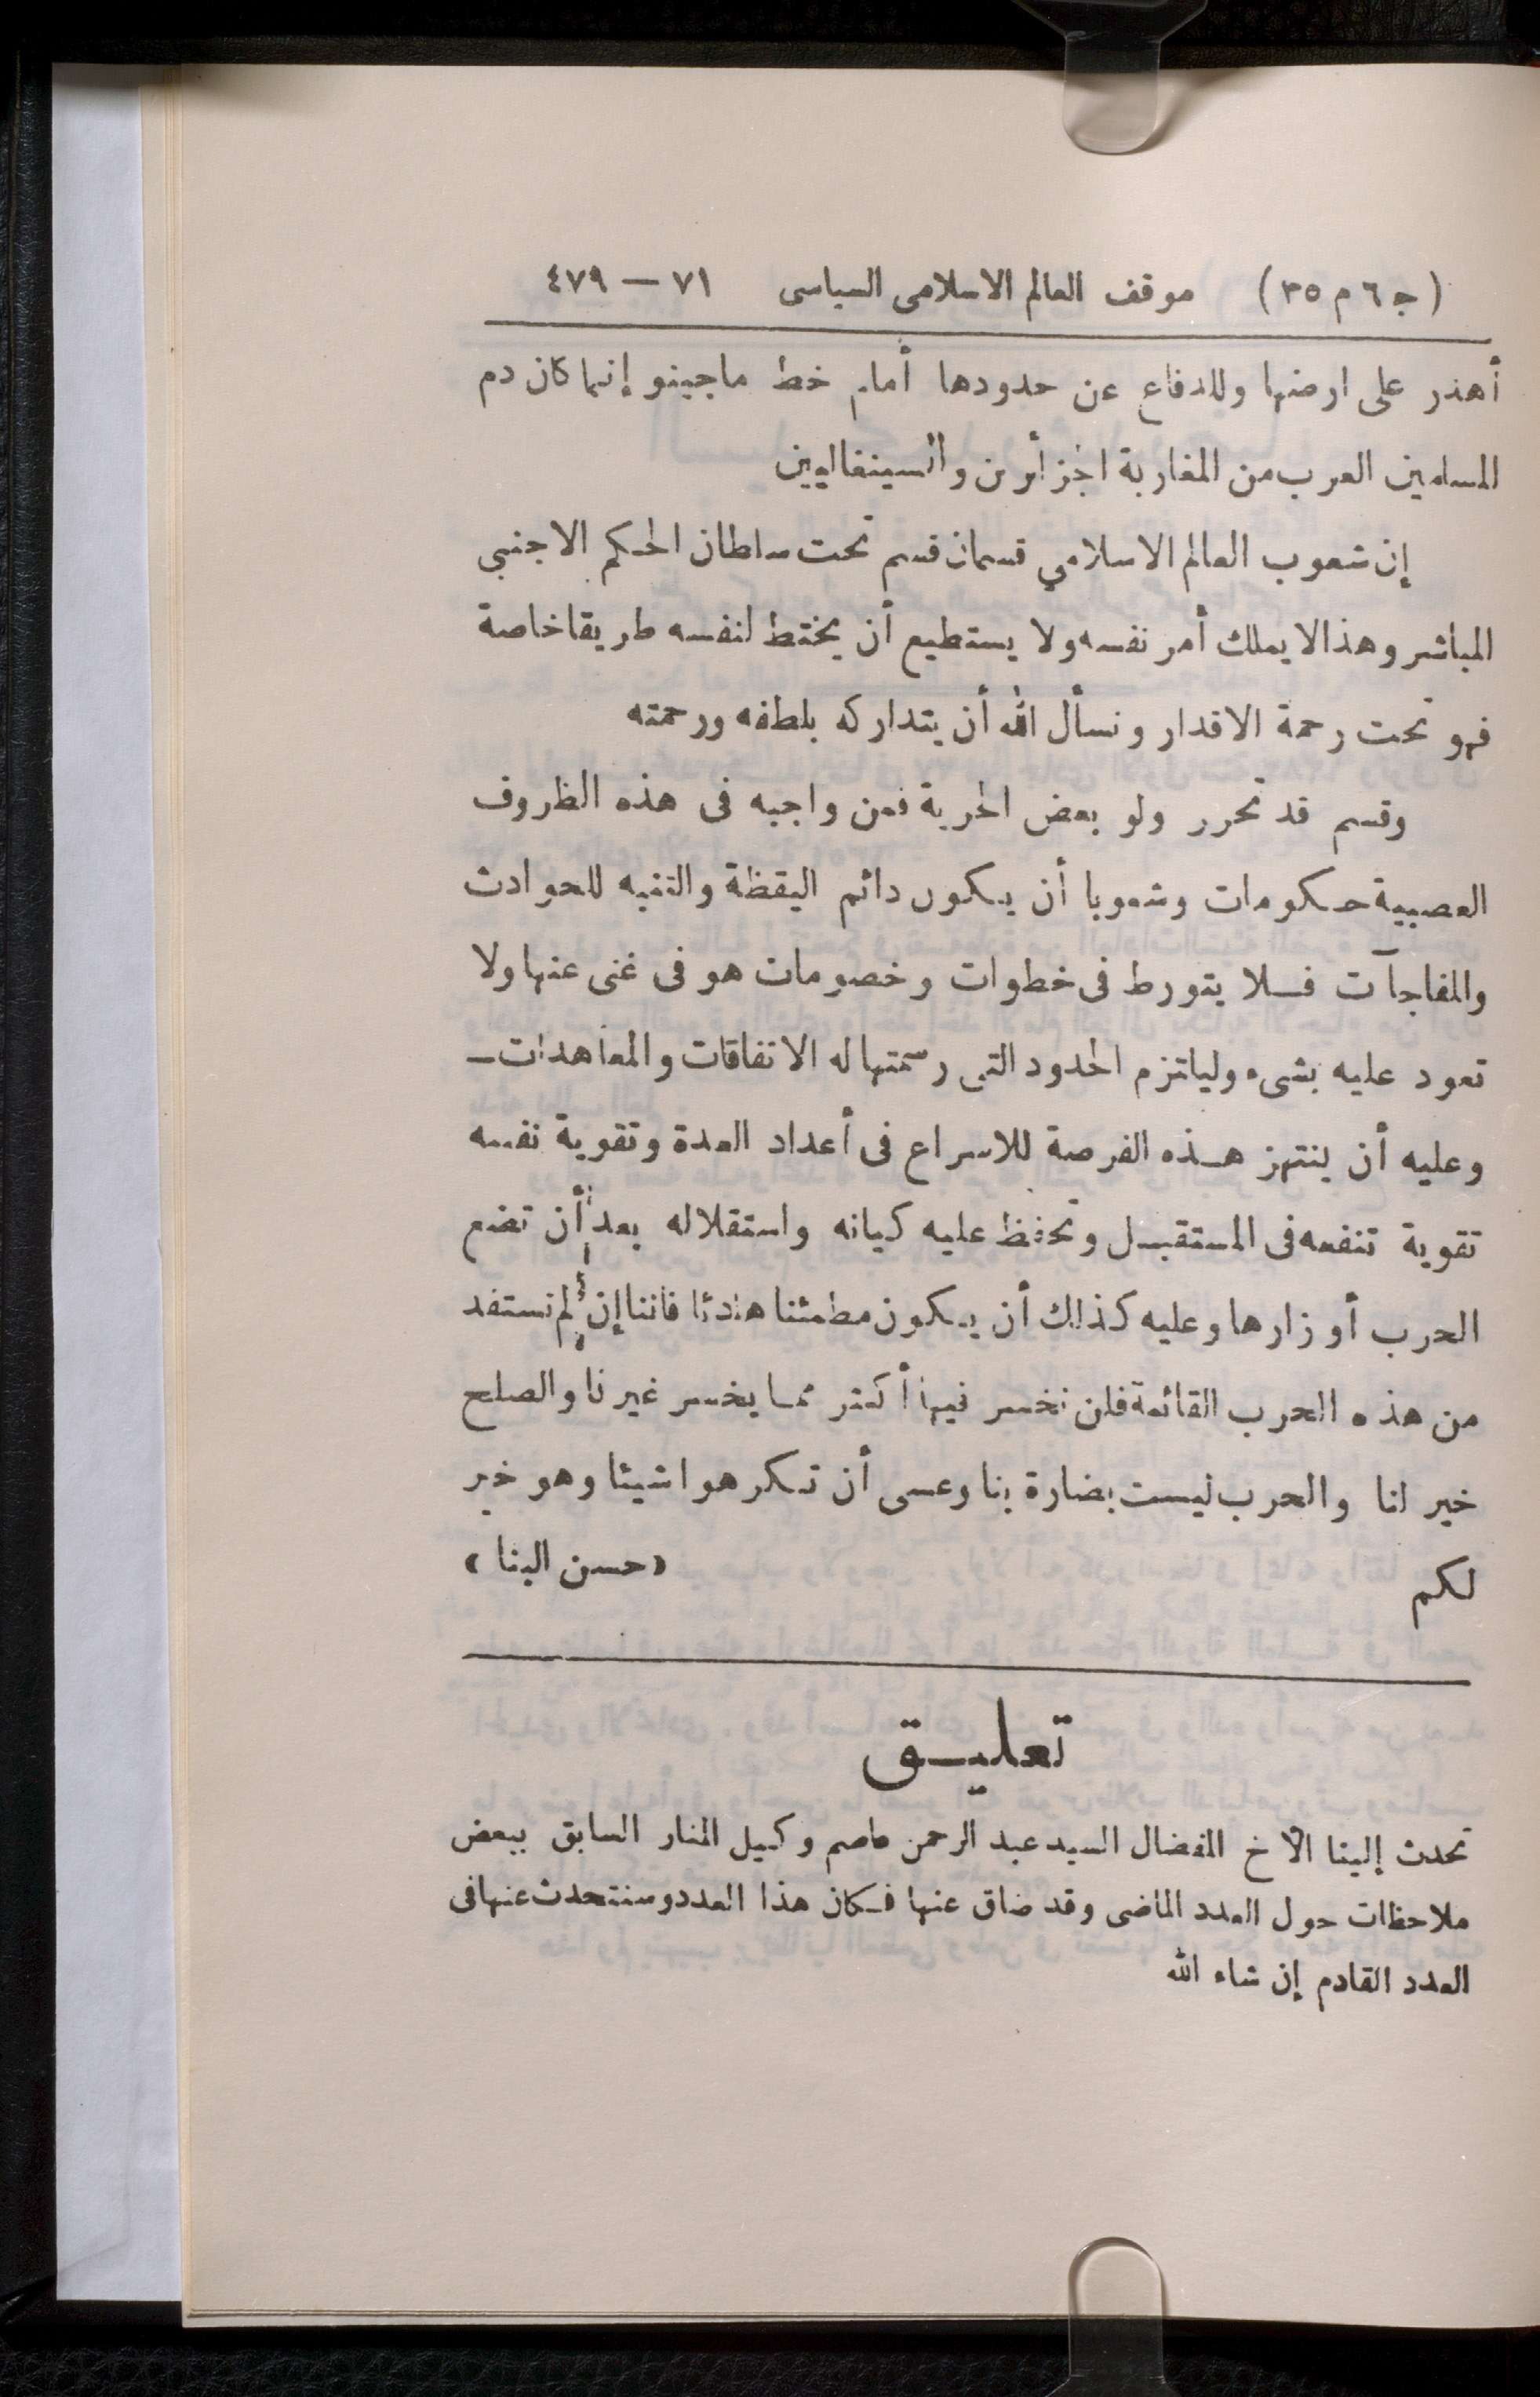 (ج ٦ م ٣٥) موقف العالم الاسلامى السياسى ٧١ — ٤٧٩
أهدر على ارضها وللدفاع عن حدودها أمام خط ماجينو إنما كان دم
المسلمين العرب من المغاربة الجزائرين والسينغاليين
إن شعوب العالم الاسلامي قسمان قسم تحت سلطان الحكم الاجنبي
المباشر وهذا لا يملك أمر نفسه ولا يستطيع أن يختط لنفسه طريقا خاصة
فهو تحت رحمة الاقدار ونسأل الله أن يتداركه بلطفه ورحمته
وقسم قد تحرر ولو بعض الحرية فمن واجبه فى هذه الظروف
العصيبة حكومات وشعوبا أن يكون دائم اليقظة والتنبه للحوادث
والمفاجآت فلا يتورط فى خطوات وخصومات هو فى غنى عنها ولا
تعود عليه بشىء وليلتزم الحدود التى رسمتها له الاتفاقات والمعاهدات —
وعليه أن ينتهز هذه الفرصة للاسراع فى أعداد العدة وتقوية نفسه
تقوية تنفعه فى المستقبل وتحفظ عليه كيانه واستقلاله بعد أن تضع
الحرب أوزارها وعليه كذلك أن يكون مطمئنا هادئا فاننا إن لم نستفد
من هذه الحرب القائمة فلن نخسر فيها أكثر مما يخسر غيرنا والصلح
خير لنا والحرب ليست بضارة بنا وعسى أن تكرهوا شيئا وهو خير
لكم «حسن البنا»
تعليق
تحدث إلينا الأخ المفضال السيد عبد الرحمن عاصم وكيل المنار السابق ببعض
ملاحظات حول العدد الماضى وقد ضاق عنها فكان هذا العدد وسنتحدث عنها فى
العدد القادم إن شاء الله